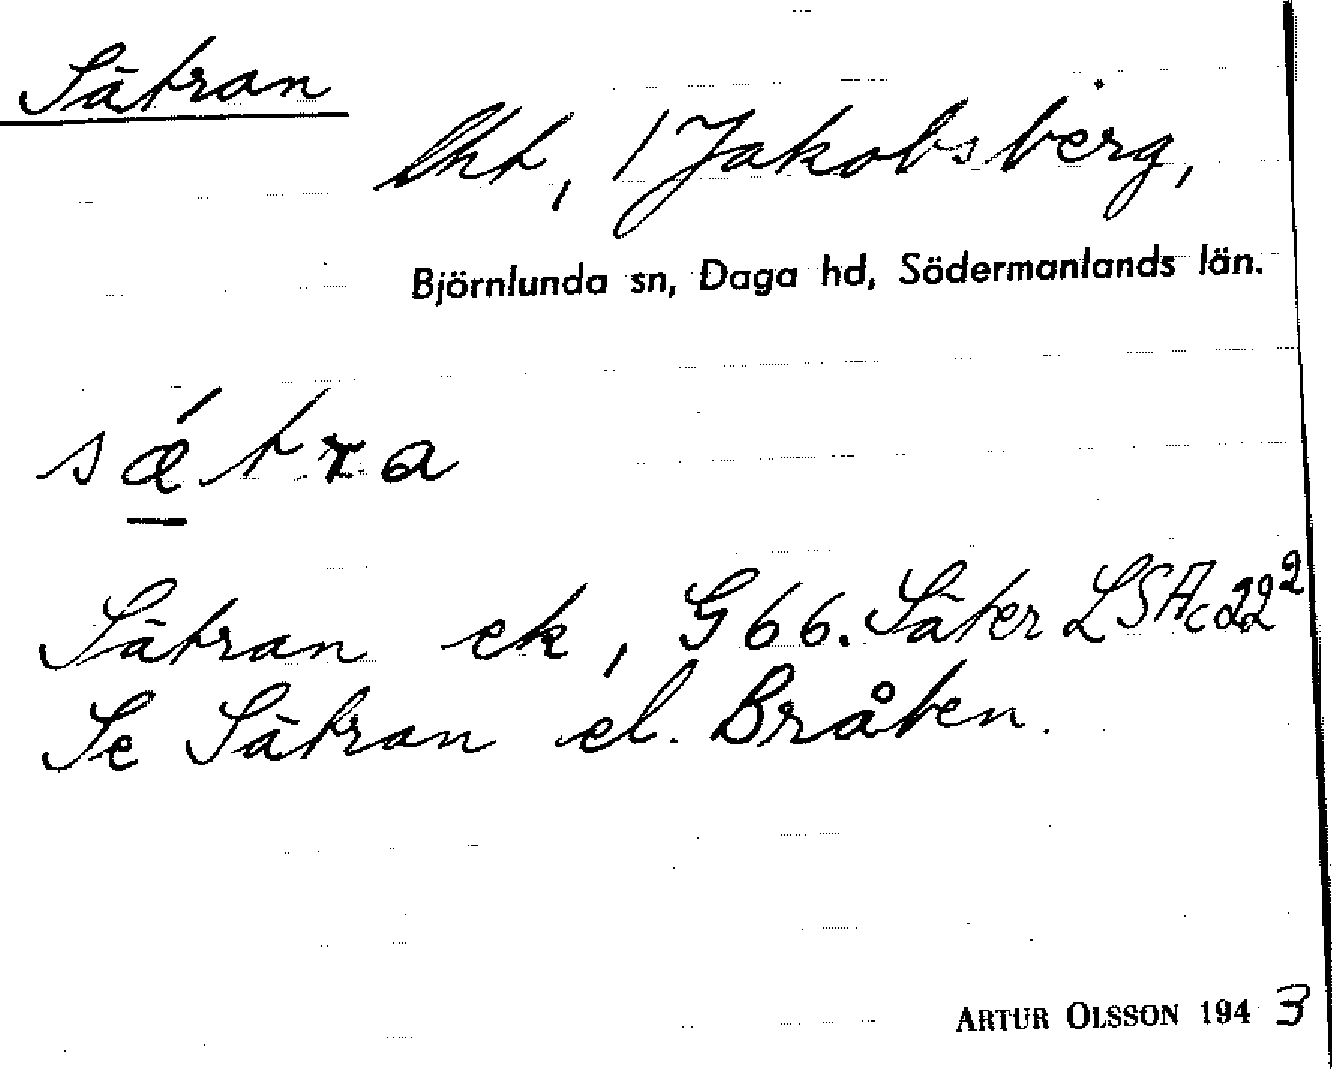 Sätran
lht, / Jakobsberg,
Björnlunda sn, Daga hd, Södermanlands län.
sǽtra
Sätran ek, G 66. Säter LSA c 22²
Se Sätran el. Bråten.
ARTUR OLSSON 1943